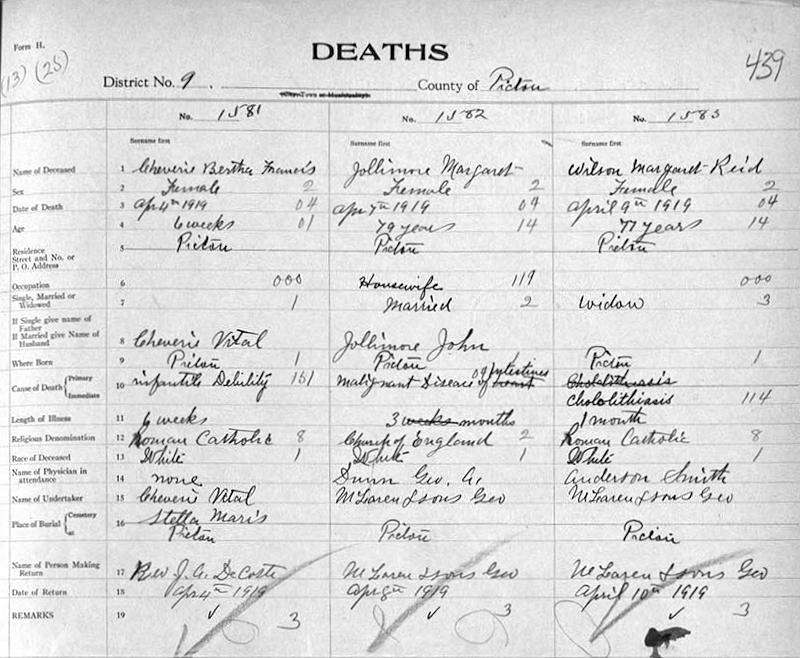 Form H.
(13) (25)
DEATHS
439
District No. 9. (City, Town or Municipality) County of Pictou
No. 1581 No. 1582 No. 1583
Surname first Surname first Surname first
Name of Deceased 1 Cheverie Bertha Francis Jollimore Margaret Wilson Margaret Reid
Sex 2 Female 2 Female 2 Female 2
Date of Death 3 Apr 4th 1919 04 Apr 7th 1919 04 April 9th 1919 04
Age 4 6 weeks 01 79 years 14 77 years 14
Residence
Street and No. or
P. O. Address 5 Pictou Pictou Pictou
Occupation 6 000 Housewife 119 000
Single, Married or
Widowed 7 1 Married 2 Widow 3
If Single give name of
Father
If Married give Name of
Husband 8 Cheverie Vital Jollimore John
Where Born 9 Pictou 1 Pictou Pictou 1
Cause of Death { Primary Immediate 10 infantile Debility 151 Malignant Disease of heart of intestines Chololithiasis
Chololithiasis 114
Length of Illness 11 6 weeks 3 weeks months 1 month
Religious Denomination 12 Roman Catholic 8 Church of England 2 Roman Catholic 8
Race of Deceased 13 White 1 White 1 White 1
Name of Physician in
attendance 14 none Dunn Geo. A. Anderson Smith
Name of Undertaker 15 Cheverie Vital McLaren & sons Geo McLaren & sons Geo
Place of Burial { Cemetery at 16 Stella Maris
Pictou Pictou Pictou
Name of Person Making
Return 17 Rev J. A. DeCoste McLaren & sons Geo McLaren & sons Geo
Date of Return 18 Apr 4th 1919 Apr 8th 1919 April 10th 1919
REMARKS 19 ✓ 3 ✓ 3 ✓ 3